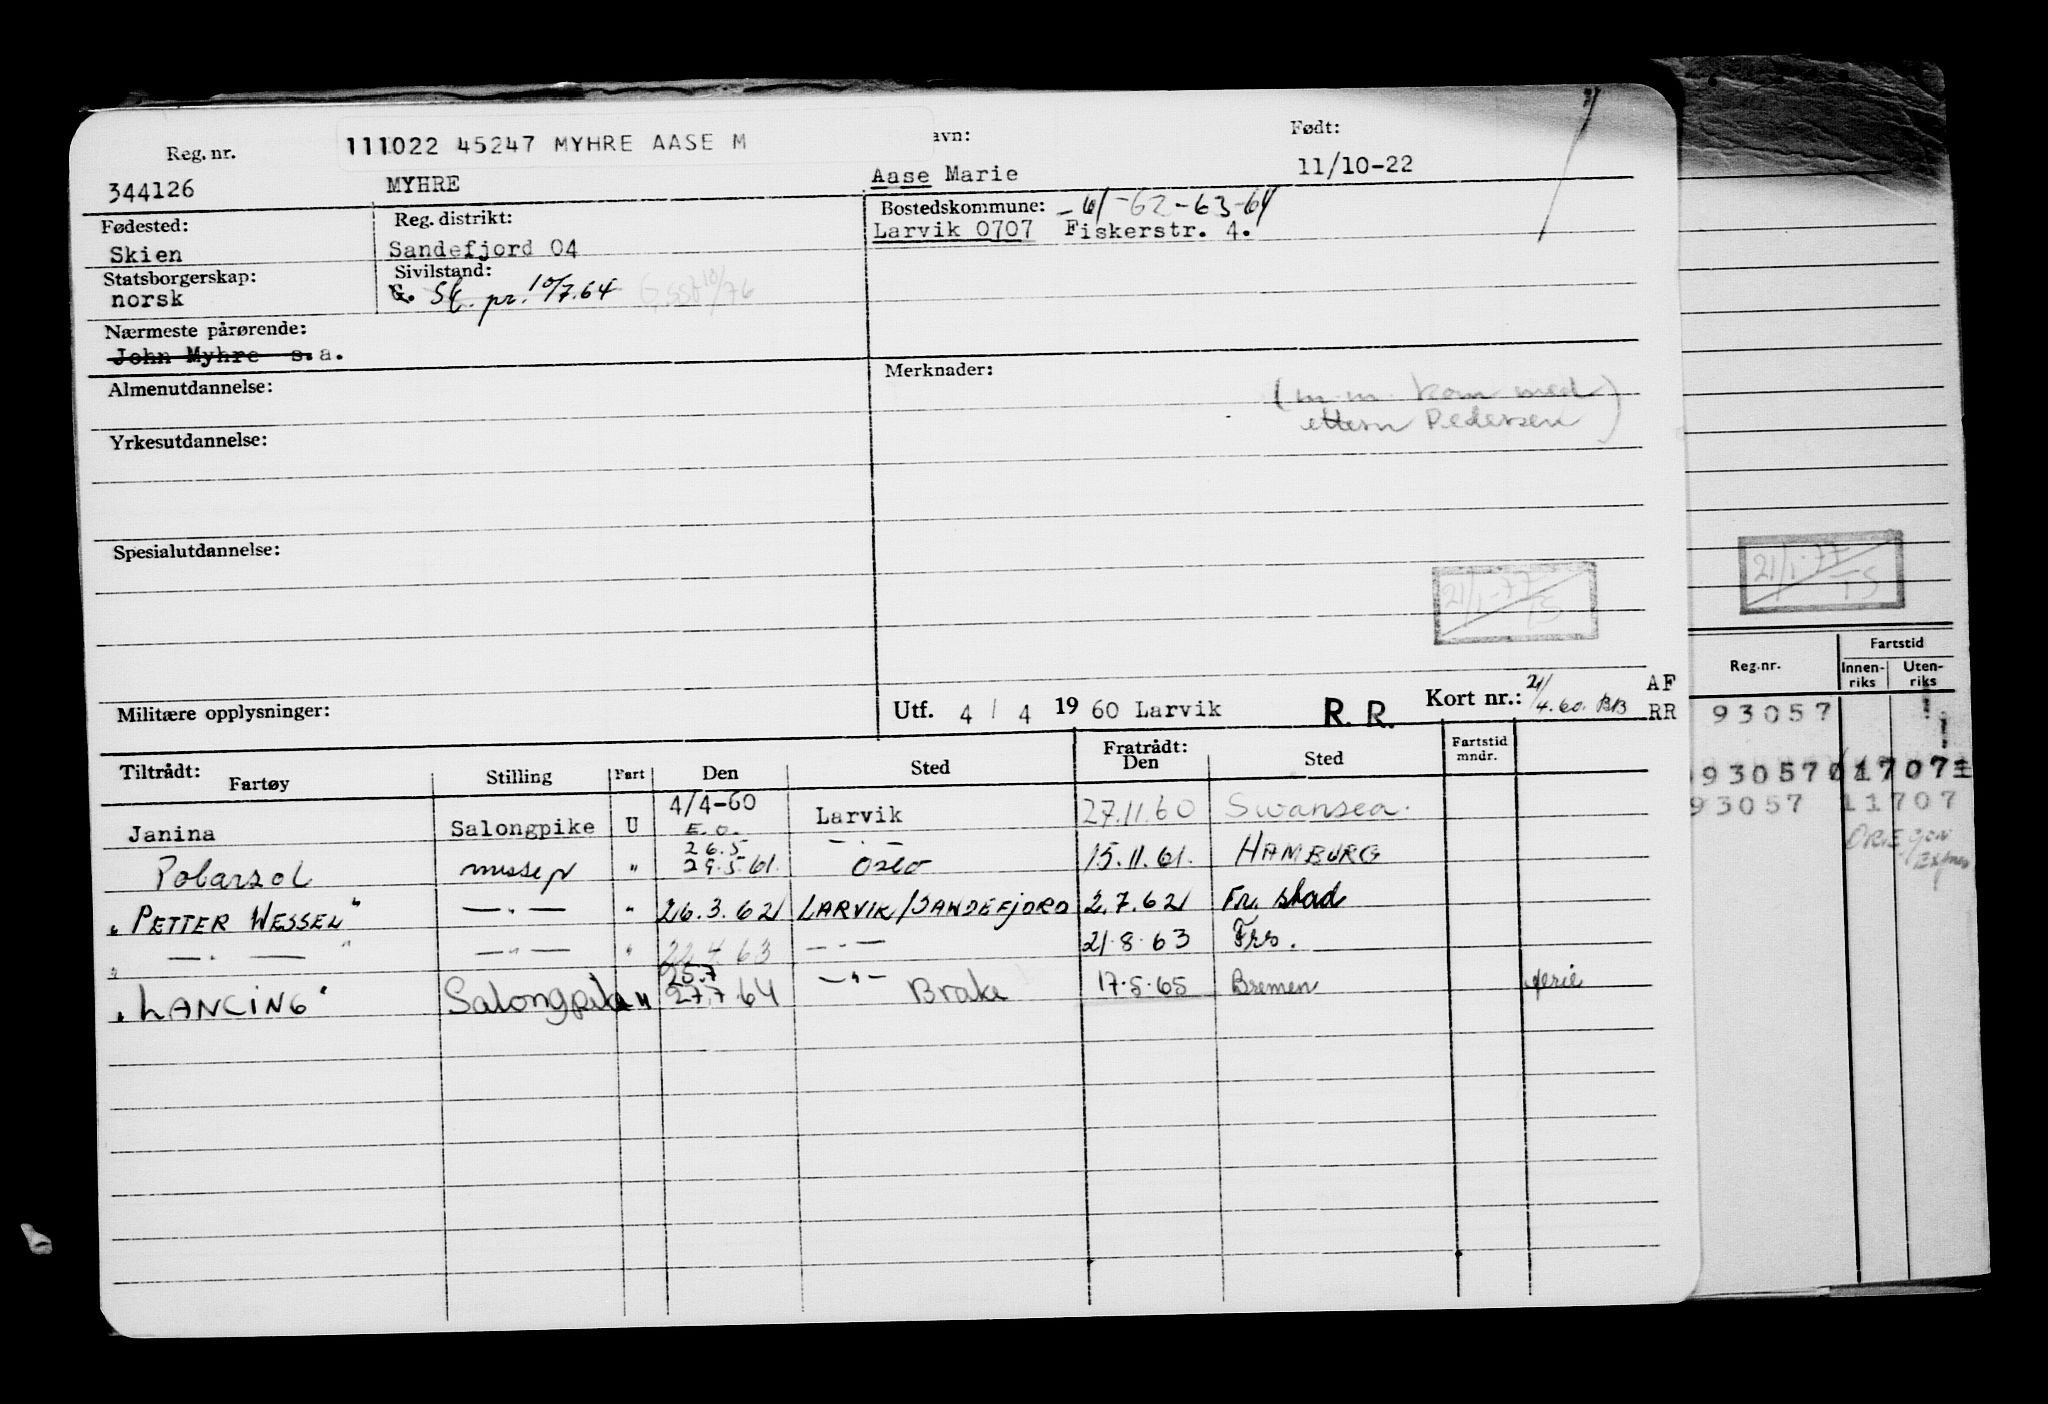 Reg. nr.
111022 45247 MYHRE AASE M
avn:
Født:
344126
MYHRE
Aase Marie
11/10-22
Fødested:
Reg. distrikt:
Bostedskommune: -61-62-63-64
Skien
Sandefjord 04
Larvik 0707 Fiskerstr. 4.
Statsborgerskap:
Sivilstand:
norsk
G. Sk. pr. 10/7.64 G. SSB 10/76
Nærmeste pårørende:
John Myhre s.a.
Almenutdannelse:
Merknader:
(m.m. kom med
ettern Pedersen)
Yrkesutdannelse:
Spesialutdannelse:
21/1-77
TS
21/1-77
TS
Militære opplysninger:
Utf. 4 / 4 1960 Larvik
R. R.
Kort nr.: 21/4.60. BB
AF
RR
Reg.nr.
Fartstid
Innen-riks
Uten-riks
93057
93057 11707
93057 11707
Tiltrådt:
Fartøy
Stilling
Fart
Den
Sted
Fratrådt:
Den
Sted
Fartstid
mndr.
Janina Salongpike U 4/4-60 E.O. Larvik 27.11.60 Swansea.
Polarsol messep " 26.5 29.5.61. - . - Oslo 15.11.61. HAMBURG
"PETTER WESSEL" — . — " 26.3.62 LARVIK/SANDEFJORD 2.7.62 Fr. stad
" — . — " — " — " 22.4.63 — . — 21.8.63 Frs.
"LANCING" Salongpike " 25.7 27.7.64 — " — Brake 17.5.65 Bremen ferie